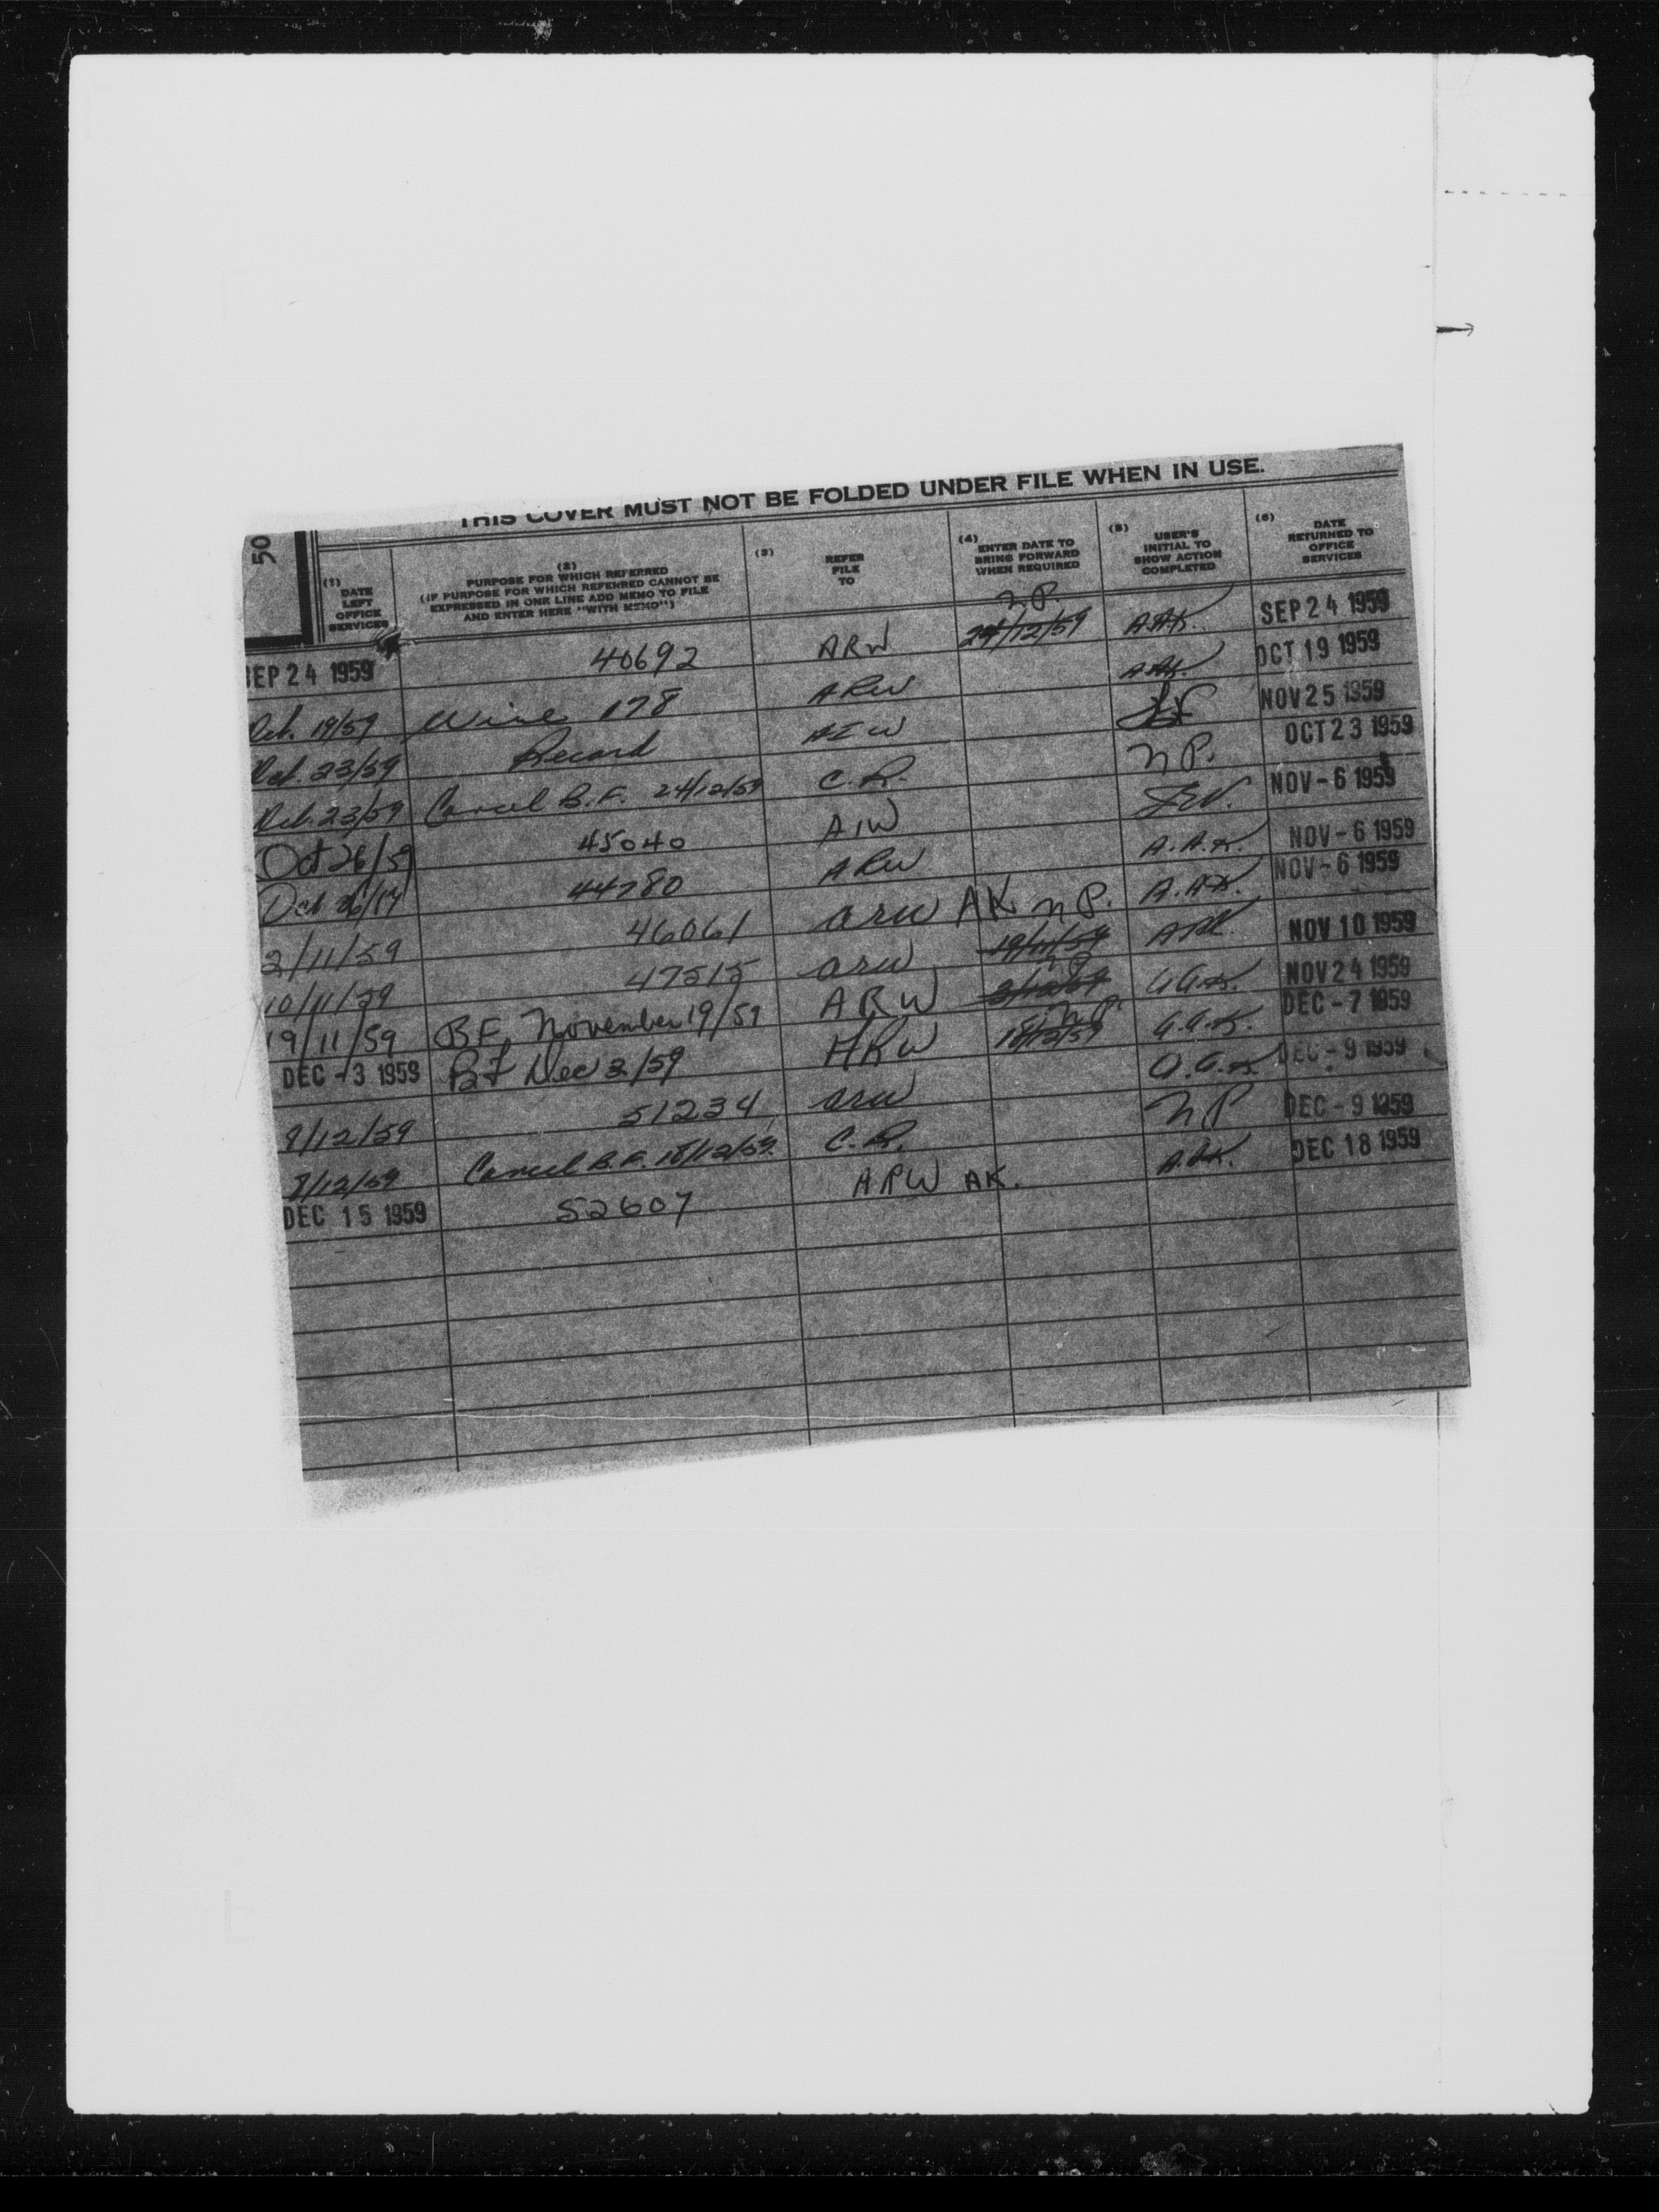 THIS COVER MUST NOT BE FOLDED UNDER FILE WHEN IN USE.
50
(1) DATE LEFT OFFICE SERVICES
(2) PURPOSE FOR WHICH REFERRED (IF PURPOSE FOR WHICH REFERRED CANNOT BE EXPRESSED IN ONE LINE ADD MEMO TO FILE AND ENTER HERE "WITH MEMO")
(3) REFER FILE TO
(4) ENTER DATE TO BRING FORWARD WHEN REQUIRED
(5) USER'S INITIAL TO SHOW ACTION COMPLETED
(6) DATE RETURNED TO OFFICE SERVICES
N.P.
SEP 24 1959 40692 ARW 24/12/59 A.A.K. SEP 24 1959
Oct. 19/59 Wire 178 ARW A.A.K. OCT 19 1959
Oct. 23/59 Record AIW NOV 25 1959
Oct. 23/59 Cancel B.F. 24/12/59 C.R. N.P. OCT 23 1959
Oct 26/59 45040 AIW NOV - 6 1959
Oct 26/ 44780 ARW A.A.K. NOV - 6 1959
2/11/59 46061 arw AK N.P. A.A.K. NOV - 6 1959
10/11/59 47515 arw 19/11/59 AAK. NOV 10 1959
19/11/59 BF November 19/59 ARW 3/12/59 A.A.K. NOV 24 1959
N.P.
DEC - 3 1959 BF Dec 3/59 ARW 18/12/59 A.A.K. DEC - 7 1959
8/12/59 51234 arw A.A.K. DEC - 9 1959
8/12/59 Cancel B.F. 18/12/59. C.R. NP DEC - 9 1959
DEC 15 1959 52607 ARW AK. A.A.K. DEC 18 1959